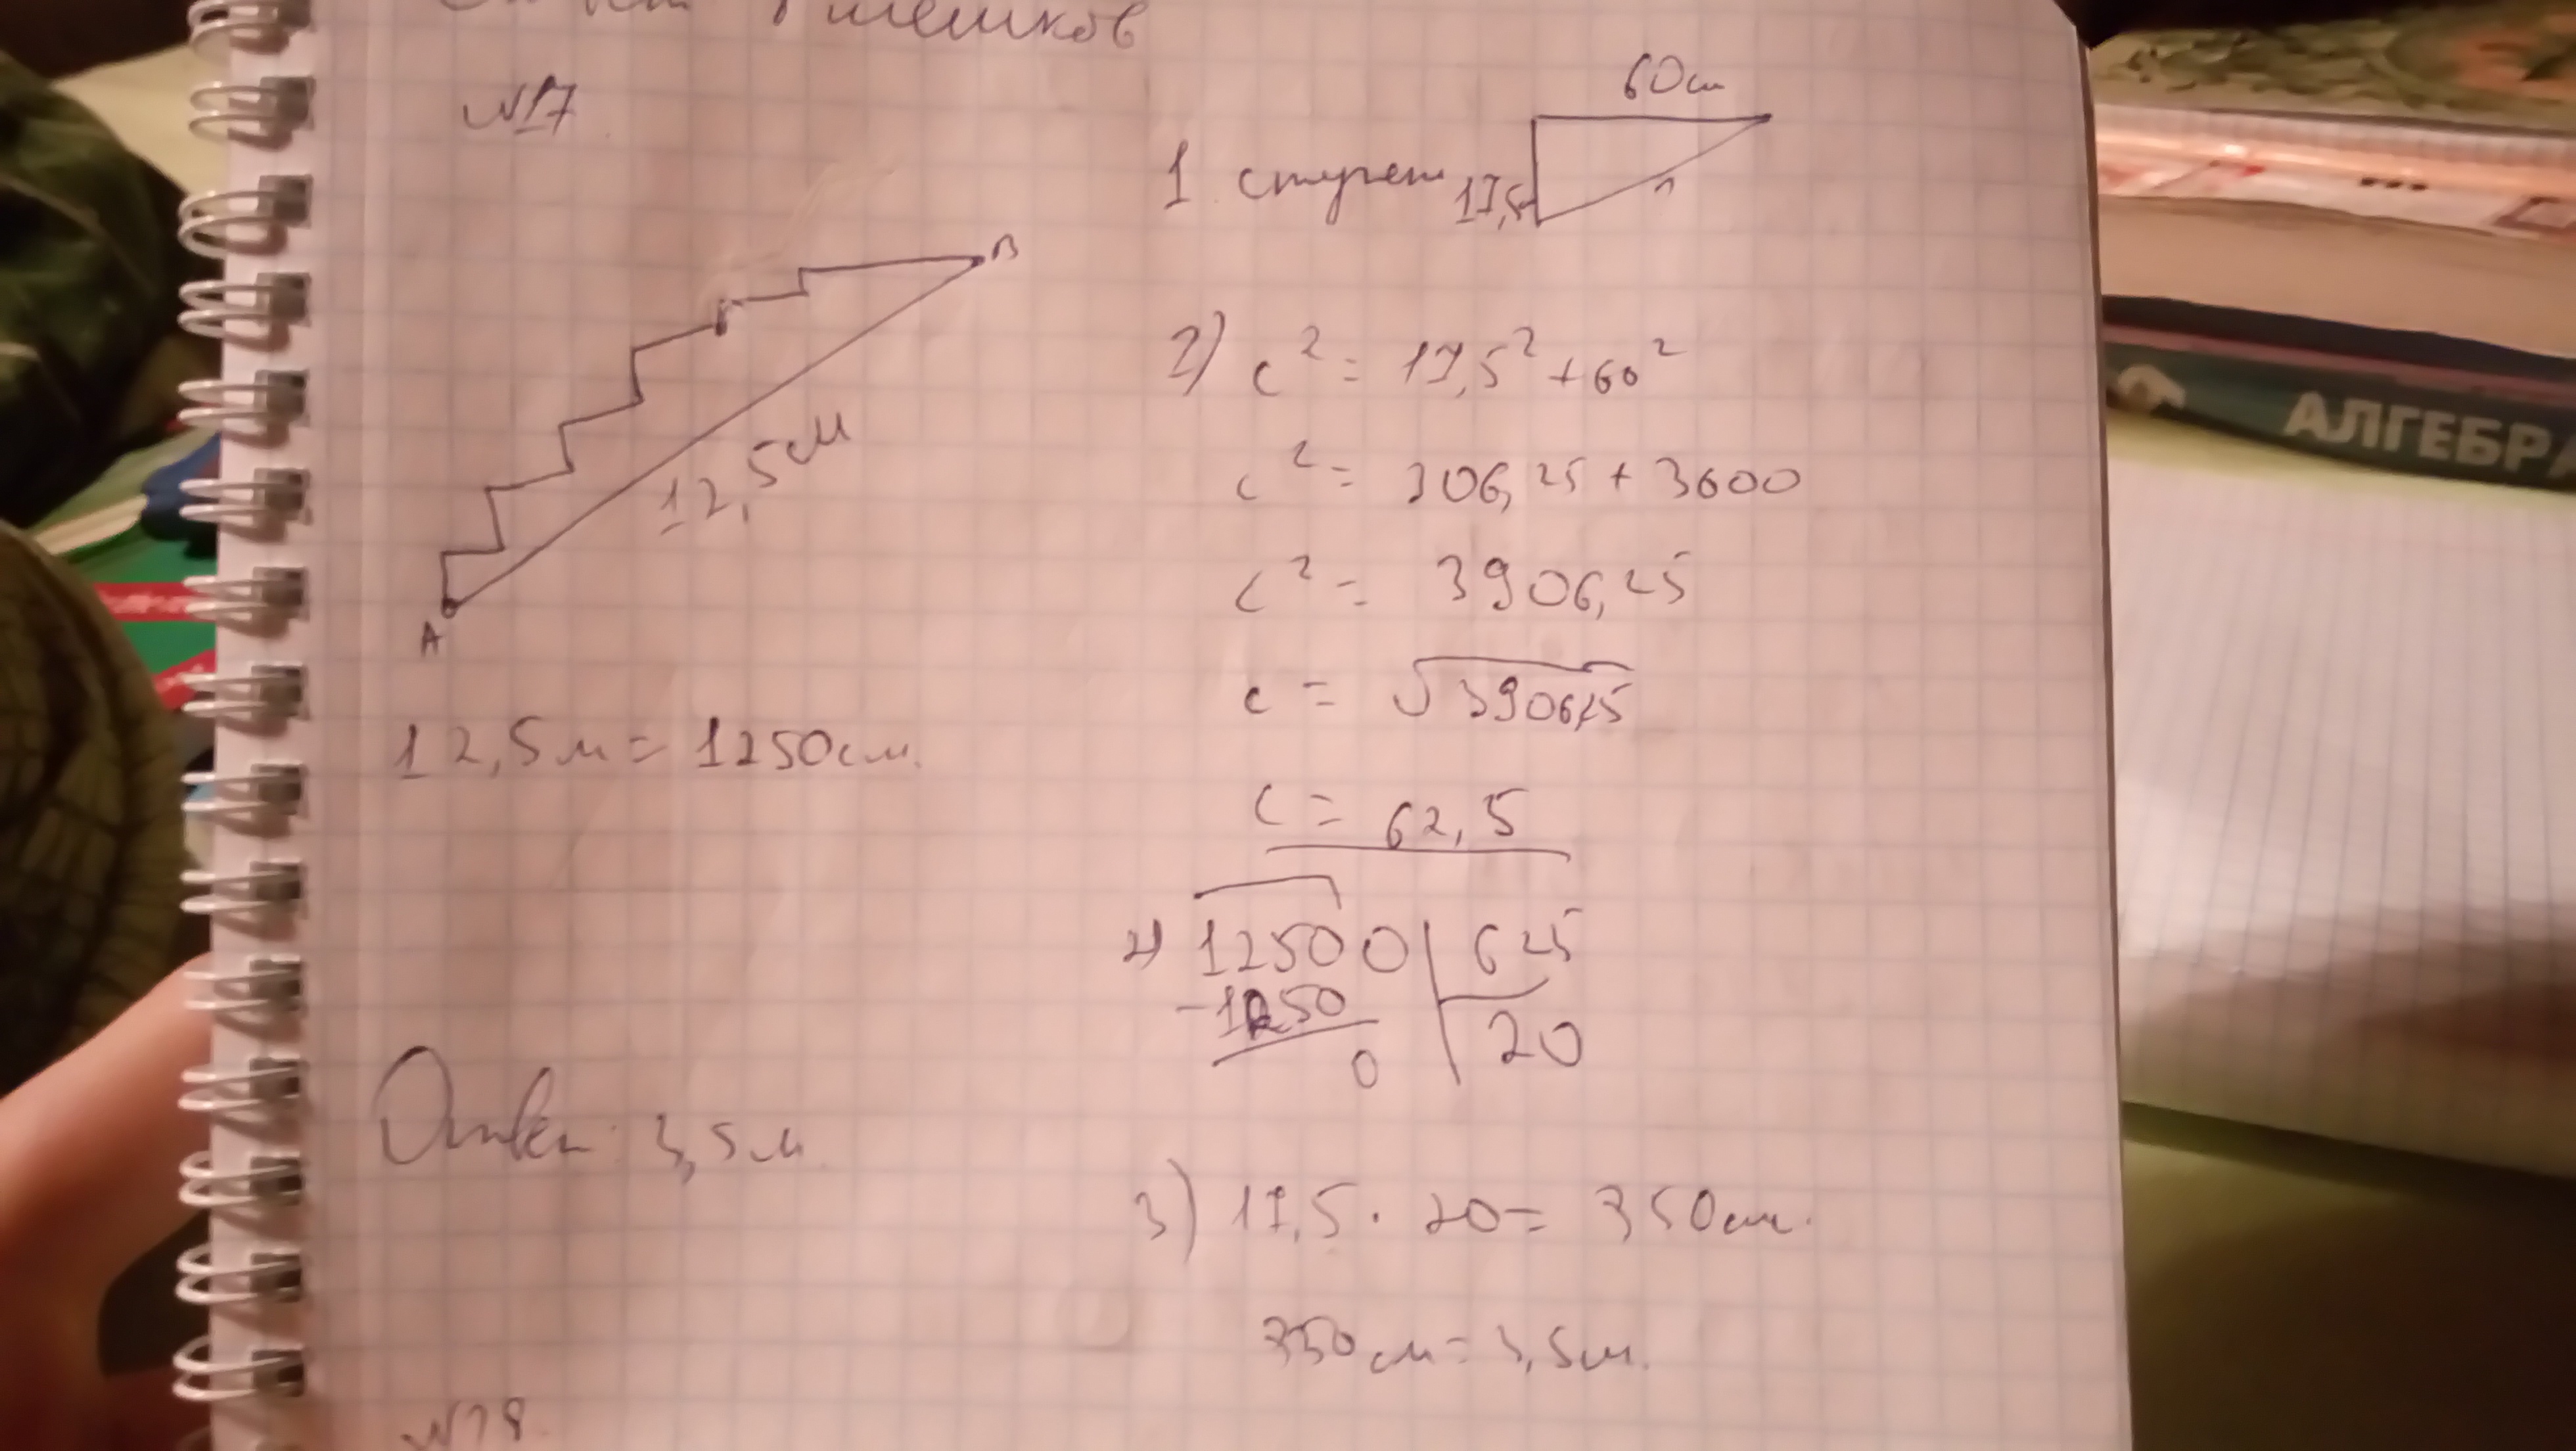 №17
B
12,5м
A
12,5м = 1250см.
Ответ: 3,5м.
60см
1 ступень
17,5
2) c² = 17,5² + 60²
c² = 306,25 + 3600
c² = 3906,25
c = √3906,25
c = 62,5
2) 12500 | 625
-1250
20
0
3) 17,5 · 20 = 350см.
350см = 3,5м.
№18.
АЛГЕБРА